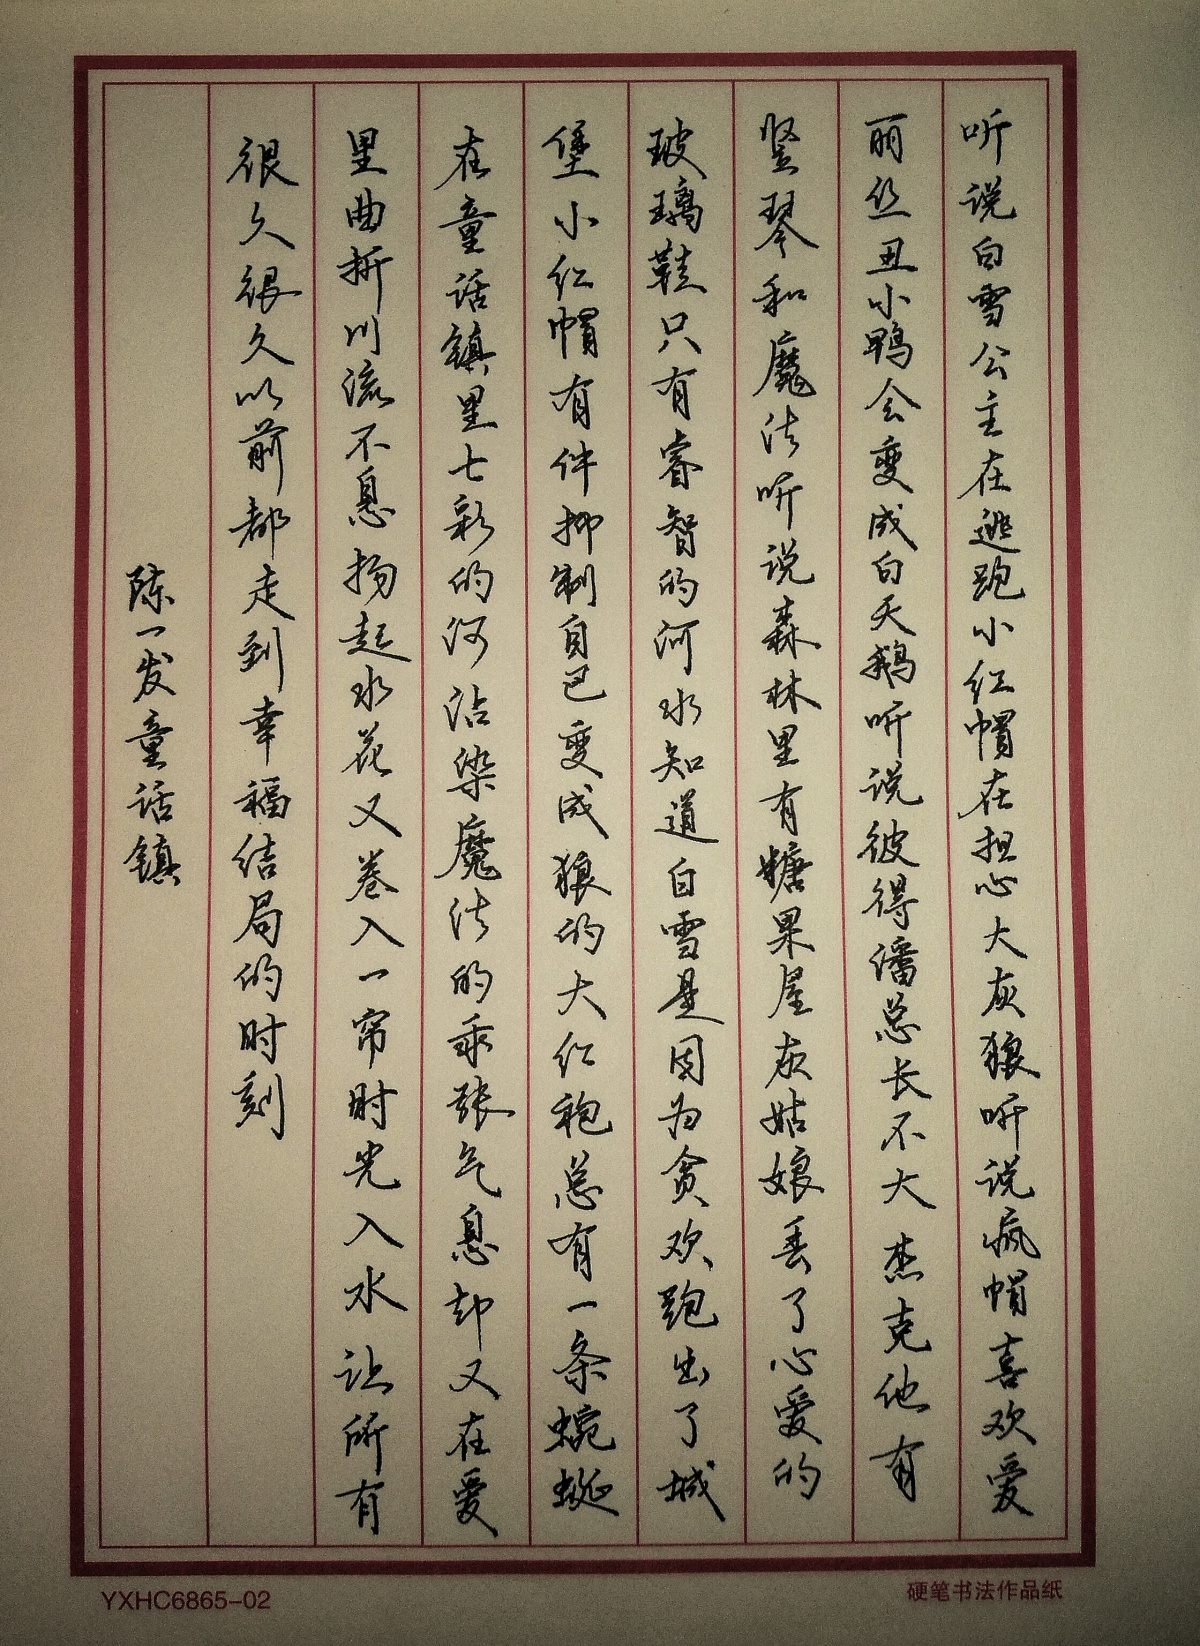 听说白雪公主在逃跑小红帽在担心大灰狼听说疯帽喜欢爱
丽丝丑小鸭会变成白天鹅听说彼得潘总长不大杰克他有
竖琴和魔法听说森林里有糖果屋灰姑娘丢了心爱的
玻璃鞋只有睿智的河水知道白雪是因为贪欢跑出了城
堡小红帽有件抑制自己变成狼的大红袍总有一条蜿蜒
在童话镇里七彩的河沾染魔法的乖张气息却又在爱
里曲折川流不息扬起水花又卷入一帘时光入水让所有
很久很久以前都走到幸福结局的时刻
陈一发童话镇
YXHC6865-02
硬笔书法作品纸